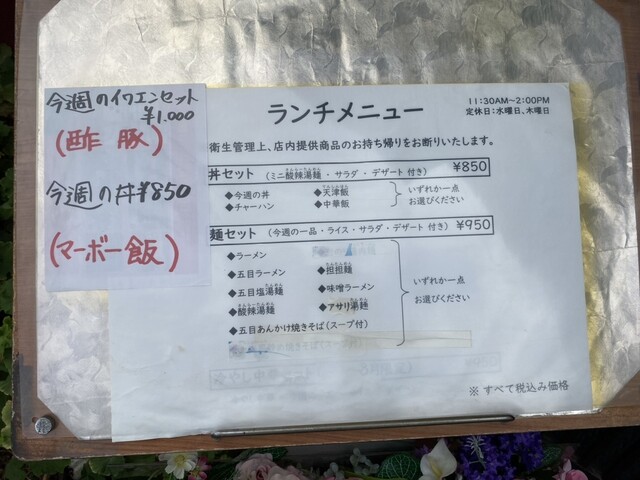 今週のイワエンセット
¥1.000
(酢豚)
今週の丼¥850
(マーボー飯)
ランチメニュー
11:30AM~2:00PM
定休日:水曜日、木曜日
衛生管理上、店内提供商品のお持ち帰りをお断りいたします。
丼セット (ミニ酸辣湯麺・サラダ・デザート 付き) ¥850
◆今週の丼 ◆天津飯
◆チャーハン ◆中華飯
いずれか一点
お選びください
麺セット (今週の一品・ライス・サラダ・デザート 付き) ¥950
◆ラーメン
◆五目ラーメン ◆担担麺
◆五目塩湯麺 ◆味噌ラーメン
◆酸辣湯麺 ◆アサリ湯麺
◆五目あんかけ焼きそば(スープ付)
いずれか一点
お選びください
※ すべて税込み価格